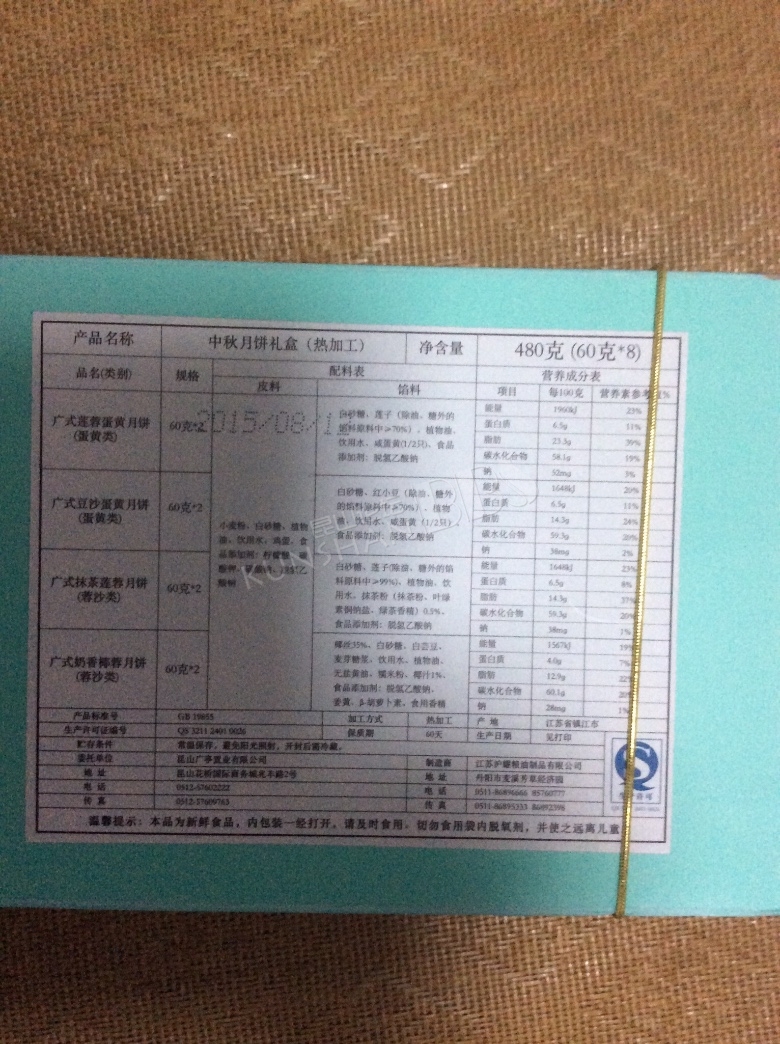 产品名称 中秋月饼礼盒（热加工） 净含量 480克 (60克*8)
品名(类别) 规格 配料表 营养成分表
皮料 馅料 项目 每100克 营养素参考值%
广式莲蓉蛋黄月饼
(蛋黄类)
60克*2
2015/08/1
白砂糖、莲子（除油、糖外的
馅料原料中≥70%）、植物油、
饮用水、咸蛋黄(1/2只)、食品
添加剂：脱氢乙酸钠
能量 1960kJ 23%
蛋白质 6.5g 11%
脂肪 23.3g 39%
碳水化合物 58.1g 19%
钠 52mg 3%
广式豆沙蛋黄月饼
(蛋黄类)
60克*2
白砂糖、红小豆（除油、糖外
的馅料原料中≥70%）、植物
油、饮用水、咸蛋黄（1/2只）、
食品添加剂：脱氢乙酸钠
能量 1648kJ 20%
蛋白质 6.5g 11%
脂肪 14.3g 24%
碳水化合物 59.3g 20%
钠 38mg 2%
小麦粉、白砂糖、植物
油、饮用水、鸡蛋、食
广式抹茶莲蓉月饼
(蓉沙类)
60克*2
白砂糖、莲子(除油、糖外的馅
料原料中≥99%)、植物油、饮
用水、抹茶粉（抹茶粉、叶绿
素铜钠盐、绿茶香精）0.5%、
食品添加剂：脱氢乙酸钠
能量 1648kJ 23%
蛋白质 6.5g 8%
脂肪 14.3g 37%
碳水化合物 59.3g 20%
钠 38mg 1%
广式奶香椰蓉月饼
(蓉沙类)
60克*2
椰丝35%、白砂糖、白芸豆、
麦芽糖浆、饮用水、植物油、
无盐黄油、糯米粉、椰汁1%、
食品添加剂：脱氢乙酸钠、
姜黄、β-胡萝卜素、食用香精
能量 1567kJ 19%
蛋白质 4.0g 7%
脂肪 12.9g 22%
碳水化合物 60.1g 20%
钠 28mg 1%
产品标准号 GB 19855 加工方式 热加工 产 地 江苏省镇江市
生产许可证编号 QS 3211 2401 0026 保质期 60天 生产日期 见打印
贮存条件 常温保存，避免阳光照射，开封后需冷藏。
委托单位 昆山广亭置业有限公司 制造商 江苏沪螺粮油制品有限公司
地 址 昆山花桥国际商务城兆丰路2号 地 址
电 话 0512-57602222 电 话 0511-86896666 85760777
传 真 0512-57609763 传 真 0511-86895333 86892398
温馨提示：本品为新鲜食品，内包装一经打开，请及时食用。切勿食用袋内脱氧剂，并使之远离儿童